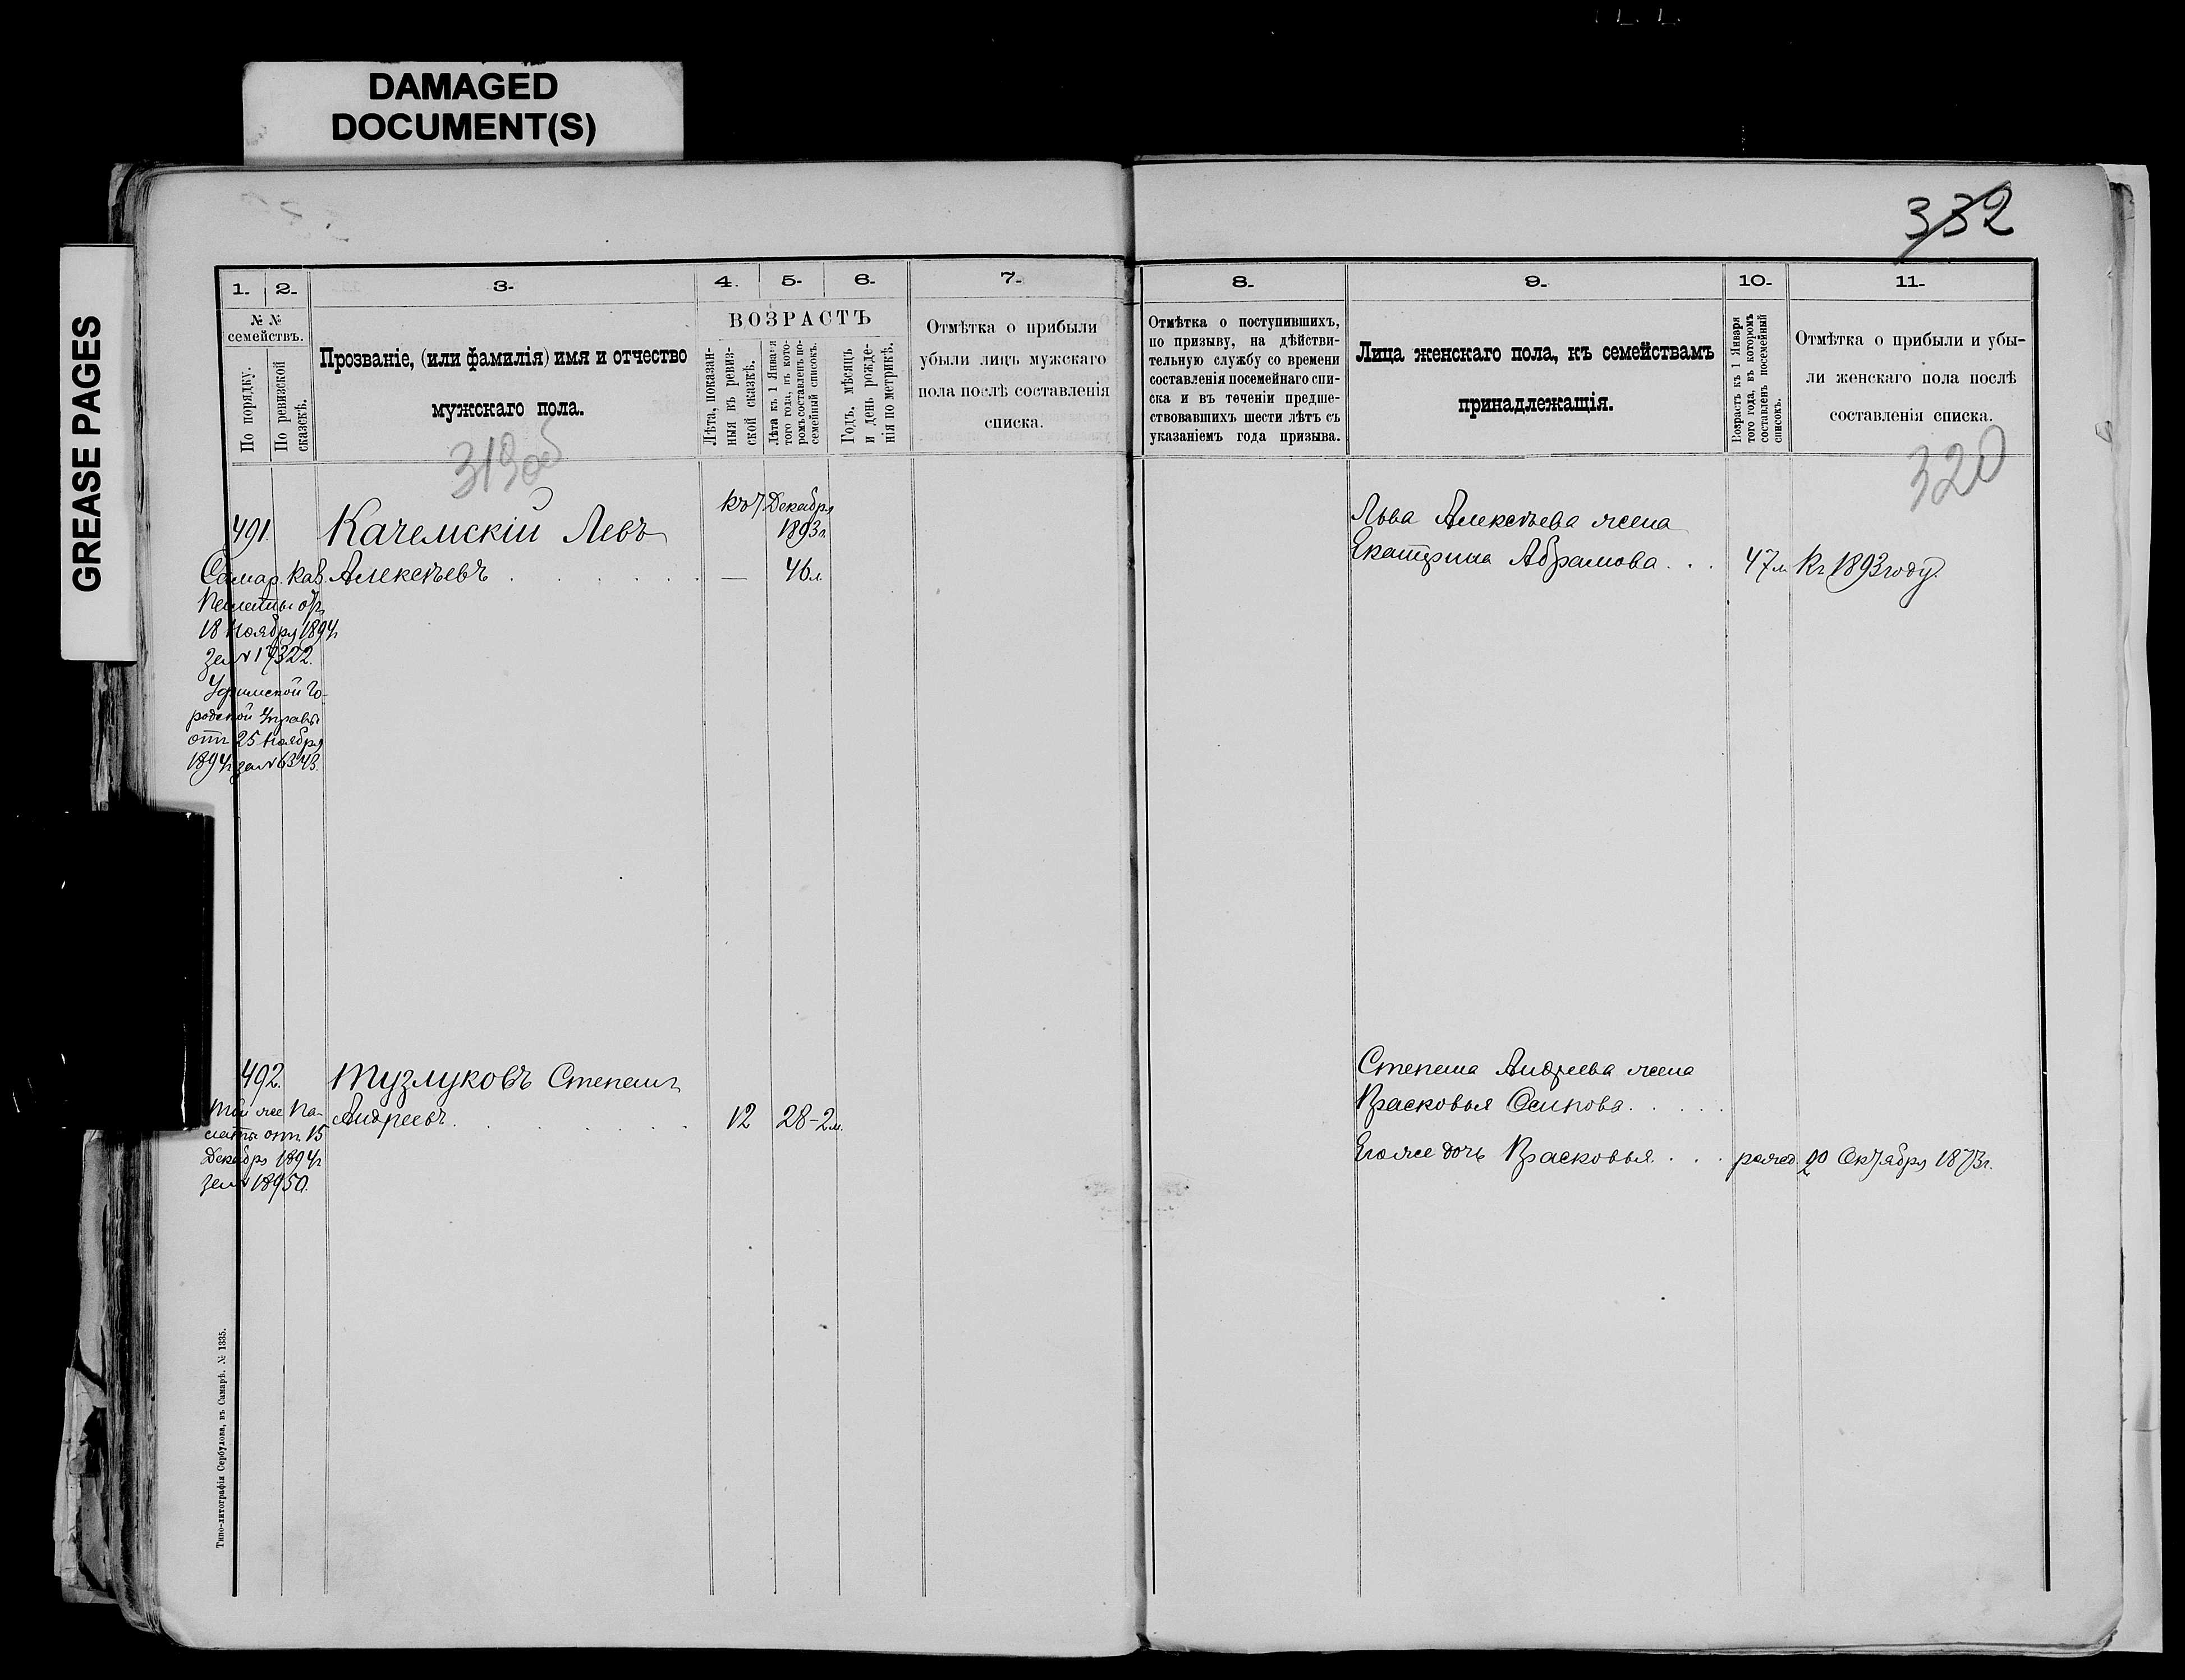 DAMAGED
DOCUMENT(S)
GREASE PAGES
332
1.
2.
3.
4.
5.
6.
7.
№ №
семействъ.
По порядку.
По ревизской
сказкѣ.
Прозваніе, (или фамилія) имя и отчество
мужскаго пола.
ВОЗРАСТЪ
Лѣта, показан-
ныя въ ревиз-
ской сказкѣ.
Лѣта къ 1 Января
того года, въ кото-
ромъ составленъ по-
семейный списокъ.
Годъ, мѣсяцъ
и день рожде-
нія по метрикѣ.
Отмѣтка о прибыли
убыли лицъ мужскаго
пола послѣ составленія
списка.
319 об
491.
Качемскій Левъ
Алексѣевъ
къ 7 Декабря
1893 г.
— 46 л.
Самар. Каз.
Палаты отъ
18 Ноября 1894 г
за № 17322.
Уфимской Го-
родской Управы
отъ 25 Ноября
1894 г за № 6343.
492.
Тузлуковъ Степанъ
Андреевъ
12 28-2 м.
Той же Па-
латы отъ 15
Декабря 1894 г
за № 18950.
Типо-литографія Сербулова, въ Самарѣ. № 1335.
8.
9.
10.
11.
Отмѣтка о поступившихъ,
по призыву, на дѣйстви-
тельную службу со времени
составленія посемейнаго спи-
ска и въ теченіи предше-
ствовавшихъ шести лѣтъ съ
указаніемъ года призыва.
Лица женскаго пола, къ семействамъ
принадлежащія.
Возрастъ къ 1 Января
того года, въ которомъ
составленъ посемейный
списокъ.
Отмѣтка о прибыли и убы-
ли женскаго пола послѣ
составленія списка.
320
Льва Алексѣева жена
Екатерина Абрамова . . . 47 л. къ 1893 году.
Степана Андреева жена
Прасковья Осипова
Его же дочь Прасковья . . . рожд. 20 Октября 1873 г.